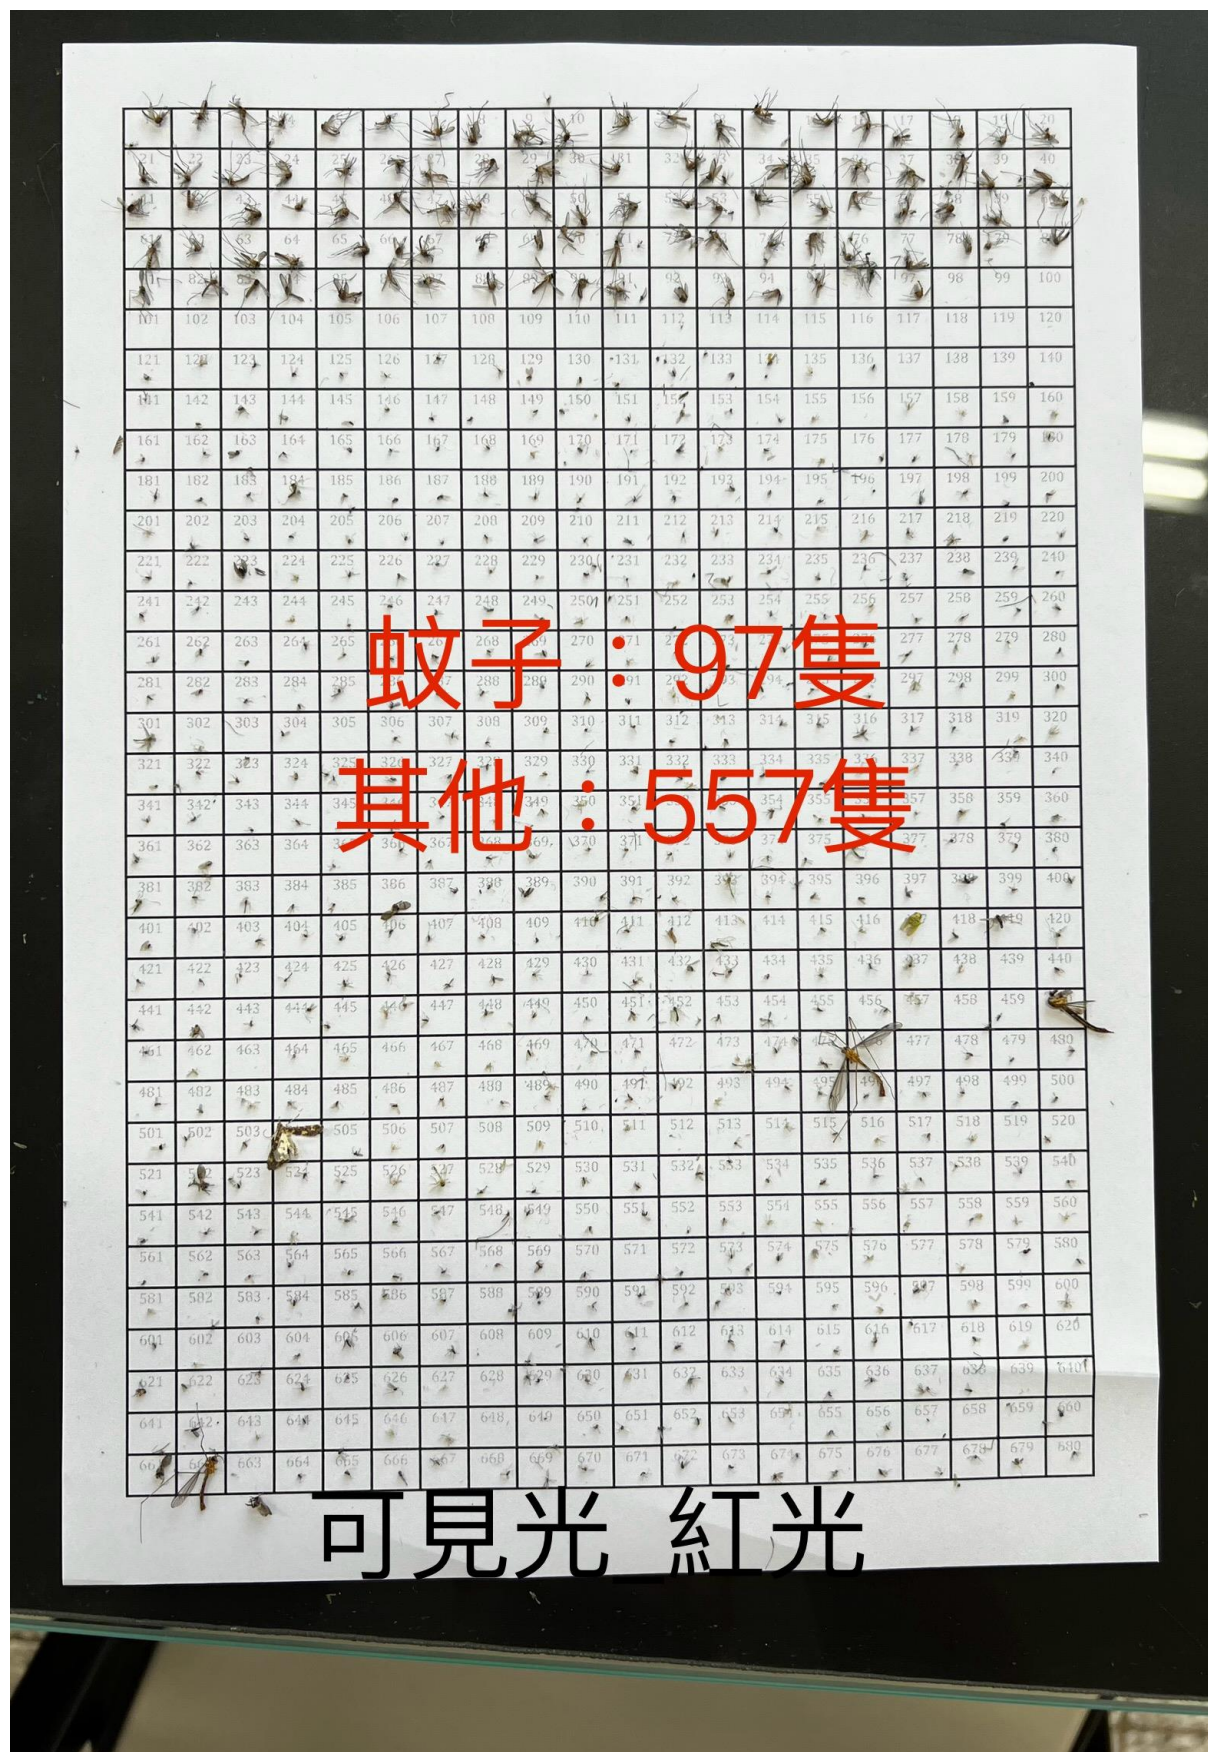 9 10 17 19 20
21 22 23 24 25 27 29 30 31 32 34 35 37 39 40
50 51 53
63 64 65 66 67 71 76 77 78 79
82 85 91 92 94 97 98 99 100
101 102 103 104 105 106 107 108 109 110 111 112 113 114 115 116 117 118 119 120
121 123 124 125 126 127 128 129 130 131 132 133 135 136 137 138 139 140
141 142 143 144 145 146 147 148 149 150 151 152 153 154 155 156 157 158 159 160
161 162 163 164 165 166 167 168 169 170 171 172 173 174 175 176 177 178 179 180
181 182 183 184 185 186 187 188 189 190 191 192 193 194 195 196 197 198 199 200
201 202 203 204 205 206 207 208 209 210 211 212 213 214 215 216 217 218 219 220
221 222 223 224 225 226 227 228 229 230 231 232 233 234 235 236 237 238 239 240
241 242 243 244 245 246 247 248 249 250 251 252 253 254 255 256 257 258 259 260
261 262 263 264 265 268 270 277 278 279 280
蚊子：97隻
281 282 283 284 285 288 289 290 297 298 299 300
301 302 303 304 305 306 307 308 309 310 311 312 313 314 315 316 317 318 319 320
321 322 323 324 325 326 327 328 329 330 331 332 333 334 335 336 337 338 339 340
341 342 343 344 345 349 350 354 355 357 358 359 360
其他：557隻
361 362 363 364 368 369 370 371 375 377 378 379 380
381 382 383 384 385 386 387 388 389 390 391 392 393 394 395 396 397 398 399 400
401 402 403 404 405 406 407 408 409 410 411 412 413 414 415 416 418 419 420
421 422 423 424 425 426 427 428 429 430 431 432 433 434 435 436 437 438 439 440
441 442 443 444 445 446 447 448 449 450 451 452 453 454 455 456 457 458 459
461 462 463 464 465 466 467 468 469 470 471 472 473 474 477 478 479 480
481 482 483 484 485 486 487 488 489 490 491 492 493 494 495 496 497 498 499 500
501 502 503 505 506 507 508 509 510 511 512 513 514 515 516 517 518 519 520
521 522 523 524 525 526 527 528 529 530 531 532 533 534 535 536 537 538 539 540
541 542 543 544 545 546 547 548 549 550 551 552 553 554 555 556 557 558 559 560
561 562 563 564 565 566 567 568 569 570 571 572 573 574 575 576 577 578 579 580
581 582 583 584 585 586 587 588 589 590 591 592 593 594 595 596 597 598 599 600
601 602 603 604 605 606 607 608 609 610 611 612 613 614 615 616 617 618 619 620
621 622 623 624 625 626 627 628 629 630 631 632 633 634 635 636 637 638 639 640
641 642 643 644 645 646 647 648 649 650 651 652 653 654 655 656 657 658 659 660
663 664 665 666 667 668 669 670 671 672 673 674 675 676 677 678 679 680
可見光_紅光